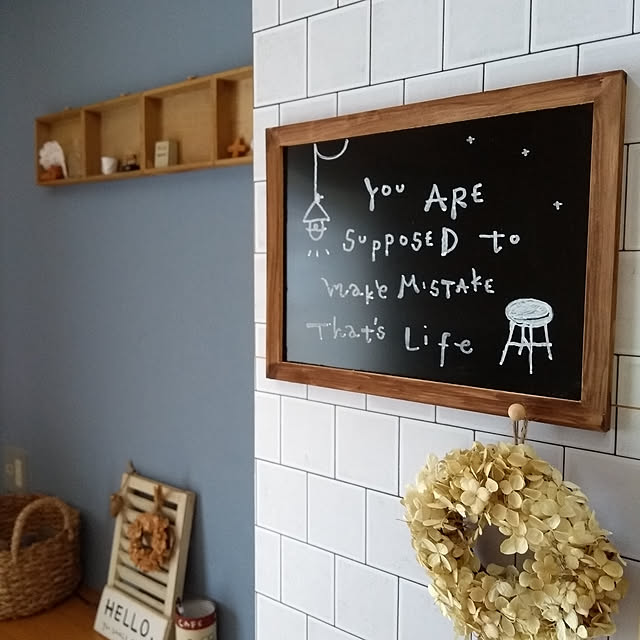 You ARE
supposed to
make MISTAKE
That's Life
HELLO,
CAFE